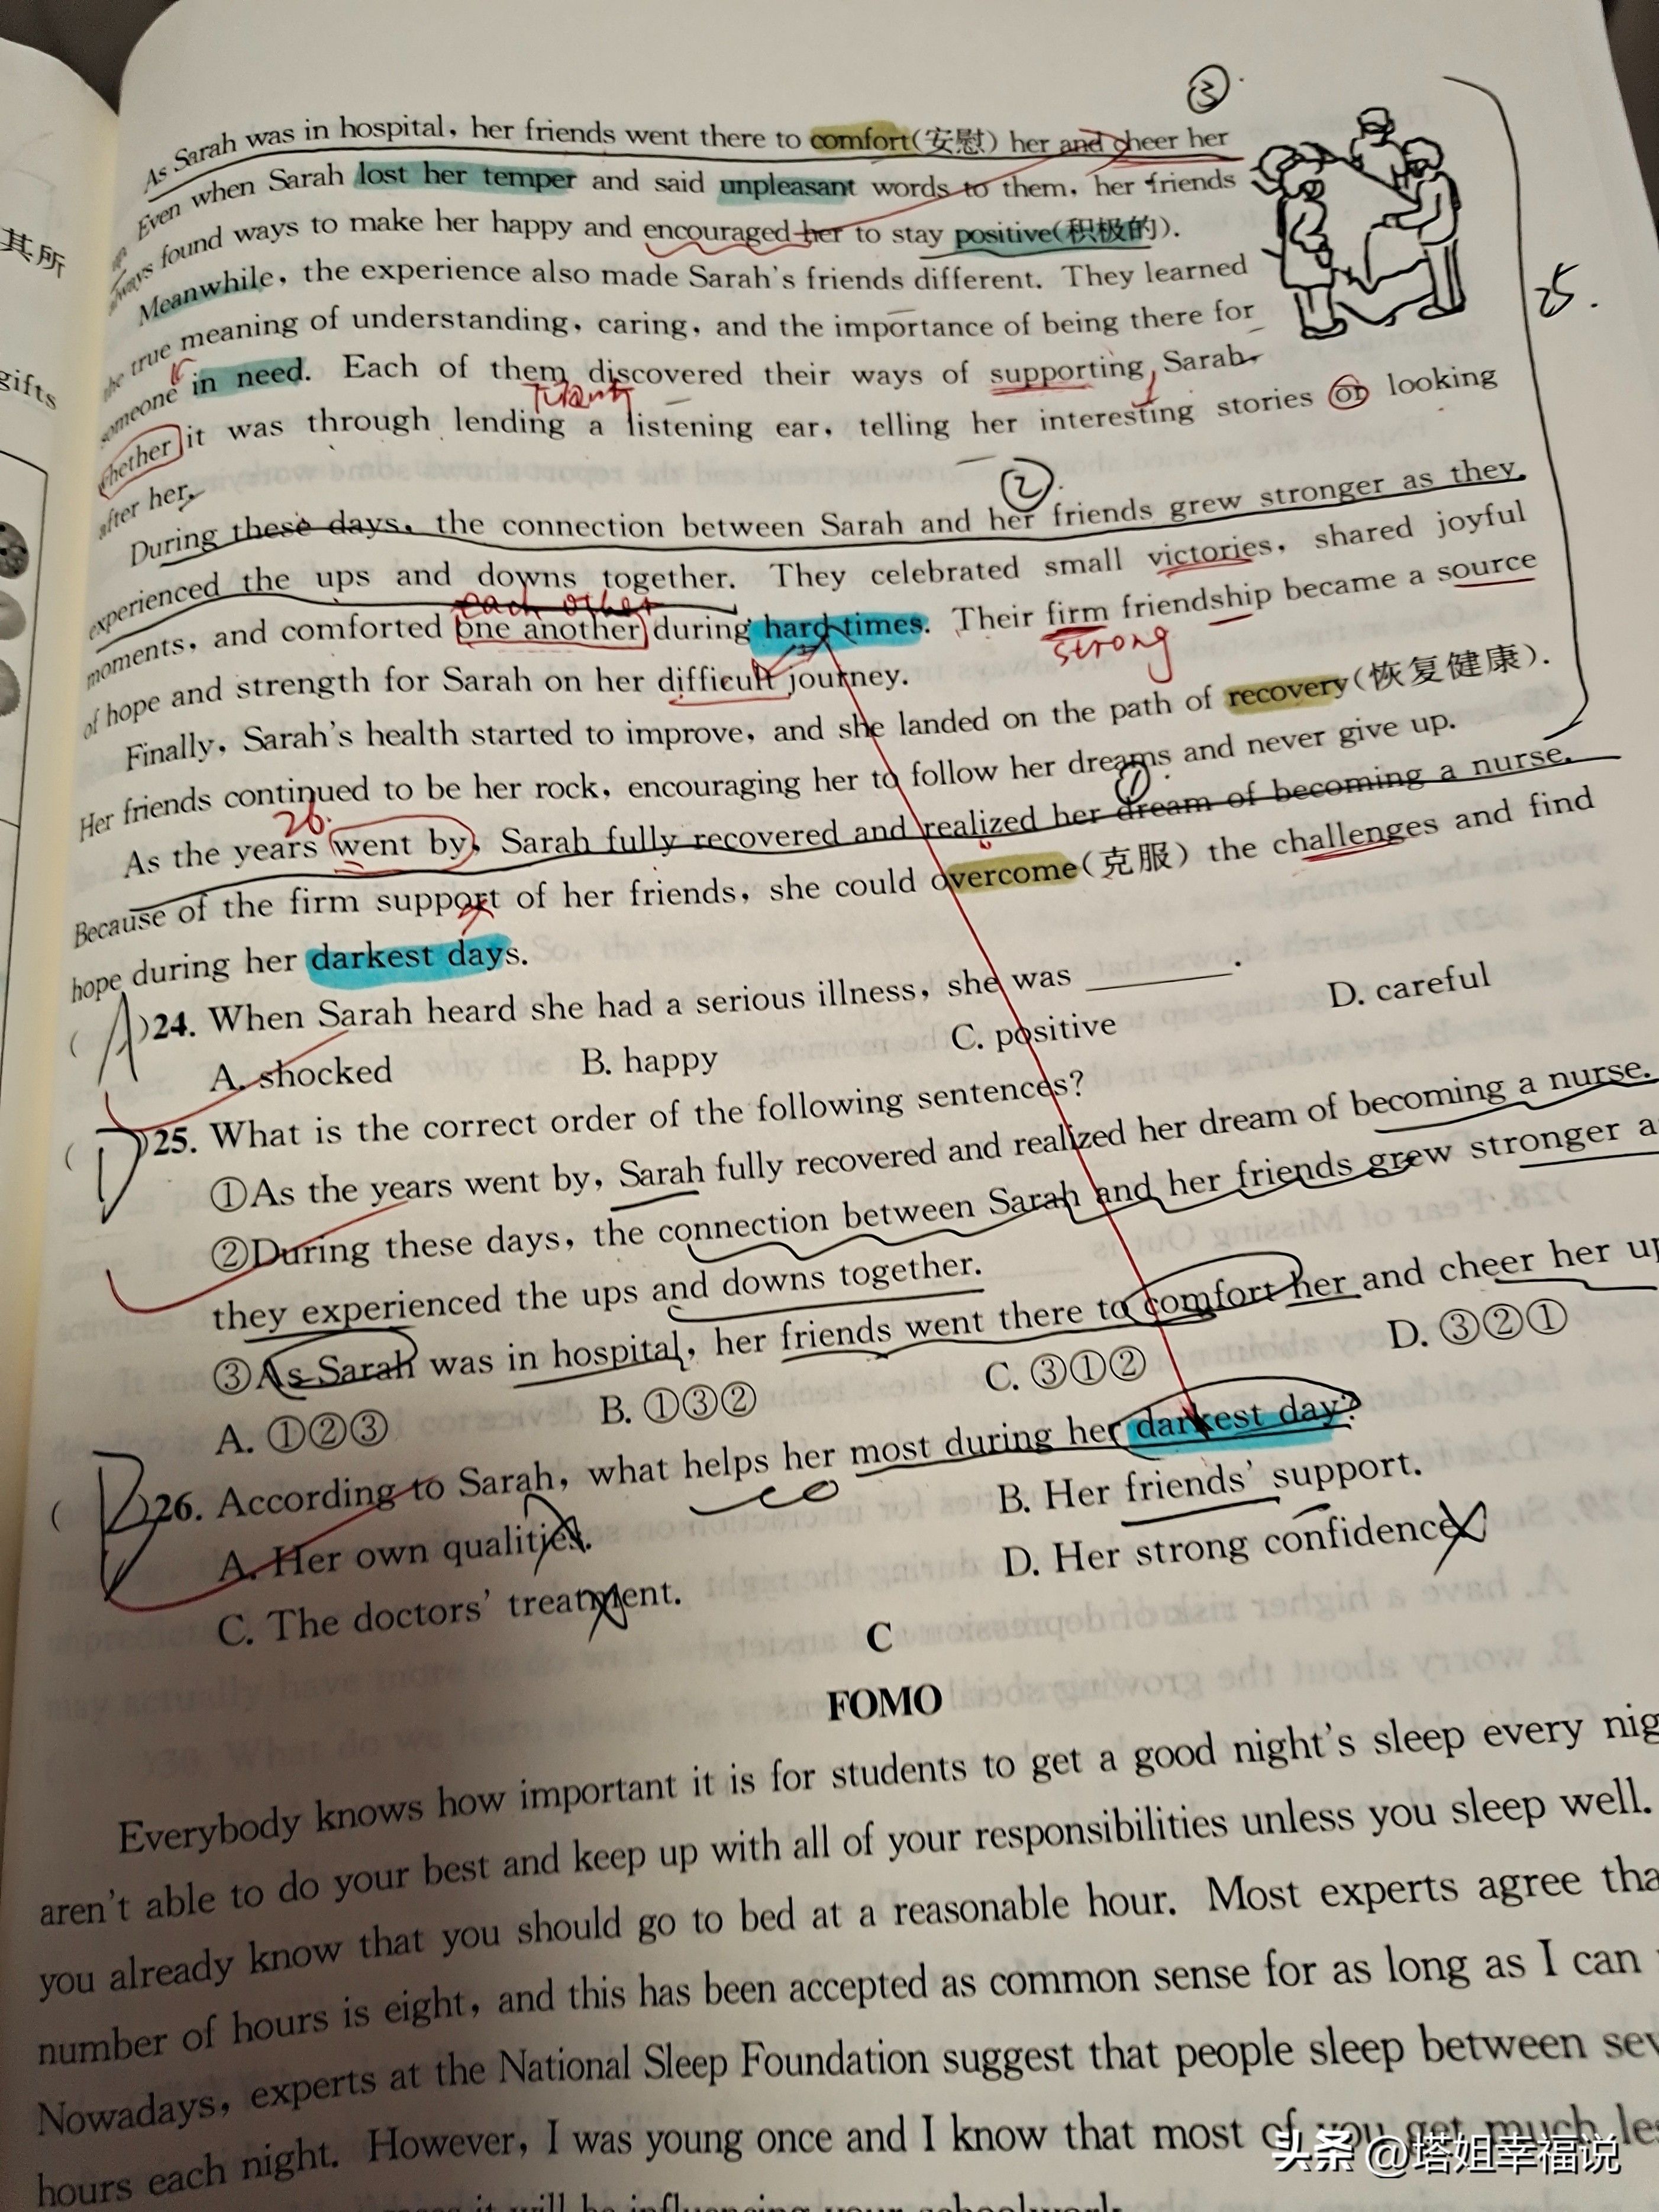 ③
As Sarah was in hospital, her friends went there to comfort(安慰) her and cheer her
up. Even when Sarah lost her temper and said unpleasant words to them, her friends
always found ways to make her happy and encouraged her to stay positive(积极的).
Meanwhile, the experience also made Sarah's friends different. They learned
the true meaning of understanding, caring, and the importance of being there for
25.
someone in need. Each of them discovered their ways of supporting Sarah,
whether it was through lending a listening ear, telling her interesting stories or looking
after her.
②
During these days, the connection between Sarah and her friends grew stronger as they
experienced the ups and downs together. They celebrated small victories, shared joyful
each other
moments, and comforted one another during hard times. Their firm friendship became a source
strong
of hope and strength for Sarah on her difficult journey.
Finally, Sarah's health started to improve, and she landed on the path of recovery(恢复健康).
Her friends continued to be her rock, encouraging her to follow her dreams and never give up.
26.
①
As the years went by, Sarah fully recovered and realized her dream of becoming a nurse.
Because of the firm support of her friends, she could overcome(克服) the challenges and find
hope during her darkest days.
(A)24. When Sarah heard she had a serious illness, she was ______.
A. shocked B. happy C. positive D. careful
(D)25. What is the correct order of the following sentences?
①As the years went by, Sarah fully recovered and realized her dream of becoming a nurse.
②During these days, the connection between Sarah and her friends grew stronger a
they experienced the ups and downs together.
③As Sarah was in hospital, her friends went there to comfort her and cheer her up
A. ①②③ B. ①③② C. ③①② D. ③②①
(B)26. According to Sarah, what helps her most during her darkest day?
A. Her own qualities. B. Her friends' support.
C. The doctors' treatment. D. Her strong confidence
C
FOMO
Everybody knows how important it is for students to get a good night's sleep every nig
aren't able to do your best and keep up with all of your responsibilities unless you sleep well.
you already know that you should go to bed at a reasonable hour. Most experts agree tha
number of hours is eight, and this has been accepted as common sense for as long as I can
Nowadays, experts at the National Sleep Foundation suggest that people sleep between sev
hours each night. However, I was young once and I know that most of you get much les
头条 @塔姐幸福说
其所
gifts